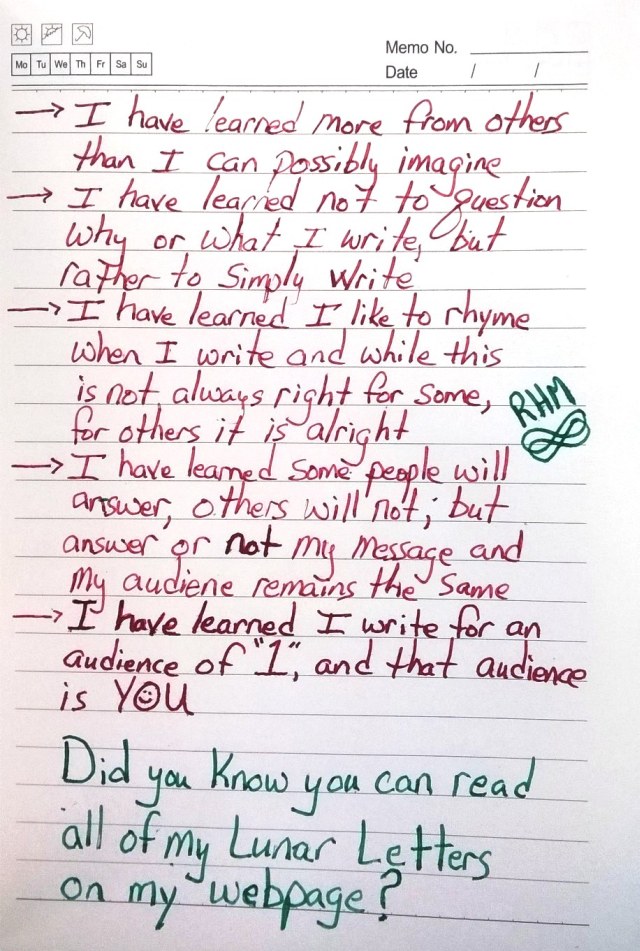 Memo No.
Mo Tu We Th Fr Sa Su
Date / /
→ I have learned more from others
than I can possibly imagine
→ I have learned not to question
why or what I write, but
rather to simply write
→ I have learned I like to rhyme
when I write and while this
is not always right for some,
for others it is alright
RHM
→ I have learned some people will
answer, others will not; but
answer or not my message and
my audiene remains the same
→ I have learned I write for an
audience of "1", and that audience
is YOU
Did you know you can read
all of my Lunar Letters
on my webpage?